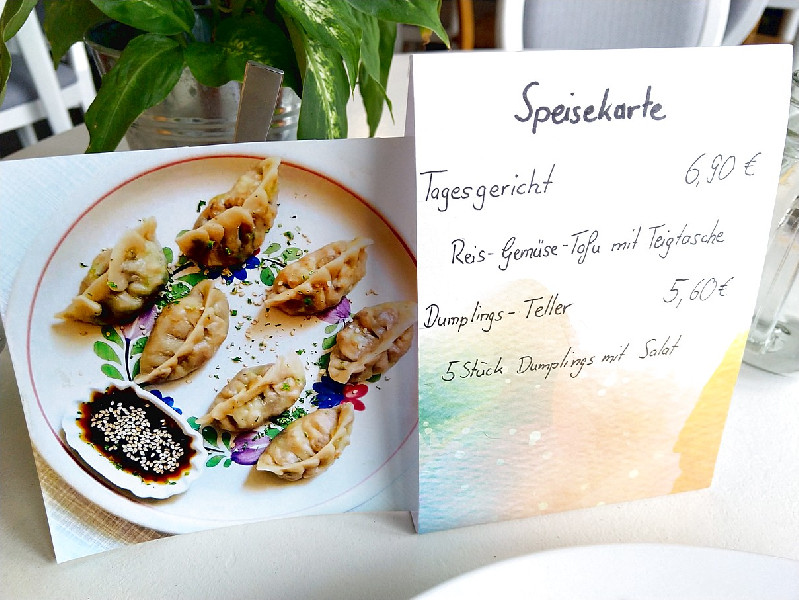 Speisekarte
Tagesgericht 6,90 €
Reis-Gemüse-Tofu mit Teigtasche
Dumplings-Teller 5,60 €
5 Stück Dumplings mit Salat